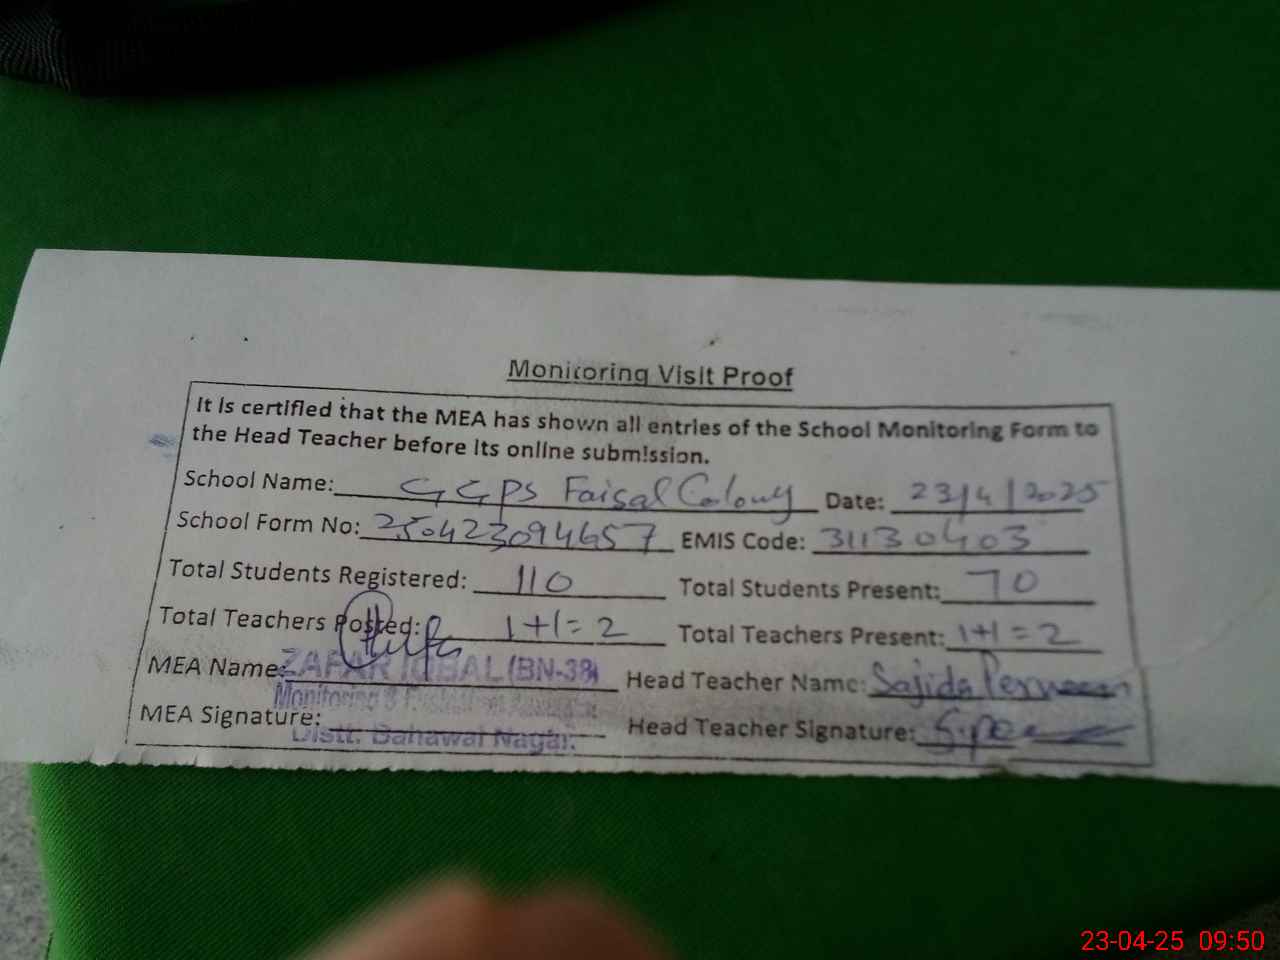 Monitoring Visit Proof
It is certified that the MEA has shown all entries of the School Monitoring Form to
the Head Teacher before its online submission.
School Name: GGPS Faisal Colony Date: 23/4/2025
School Form No: 250423094657 EMIS Code: 31130403
Total Students Registered: 110 Total Students Present: 70
Total Teachers Posted: 1+1=2 Total Teachers Present: 1+1=2
MEA Name: ZAFAR IQBAL (BN-38) Head Teacher Name: Sajida Perveen
Monitoring &
MEA Signature: Head Teacher Signature:
Distt. Bahawal Nagar.
23-04-25 09:50